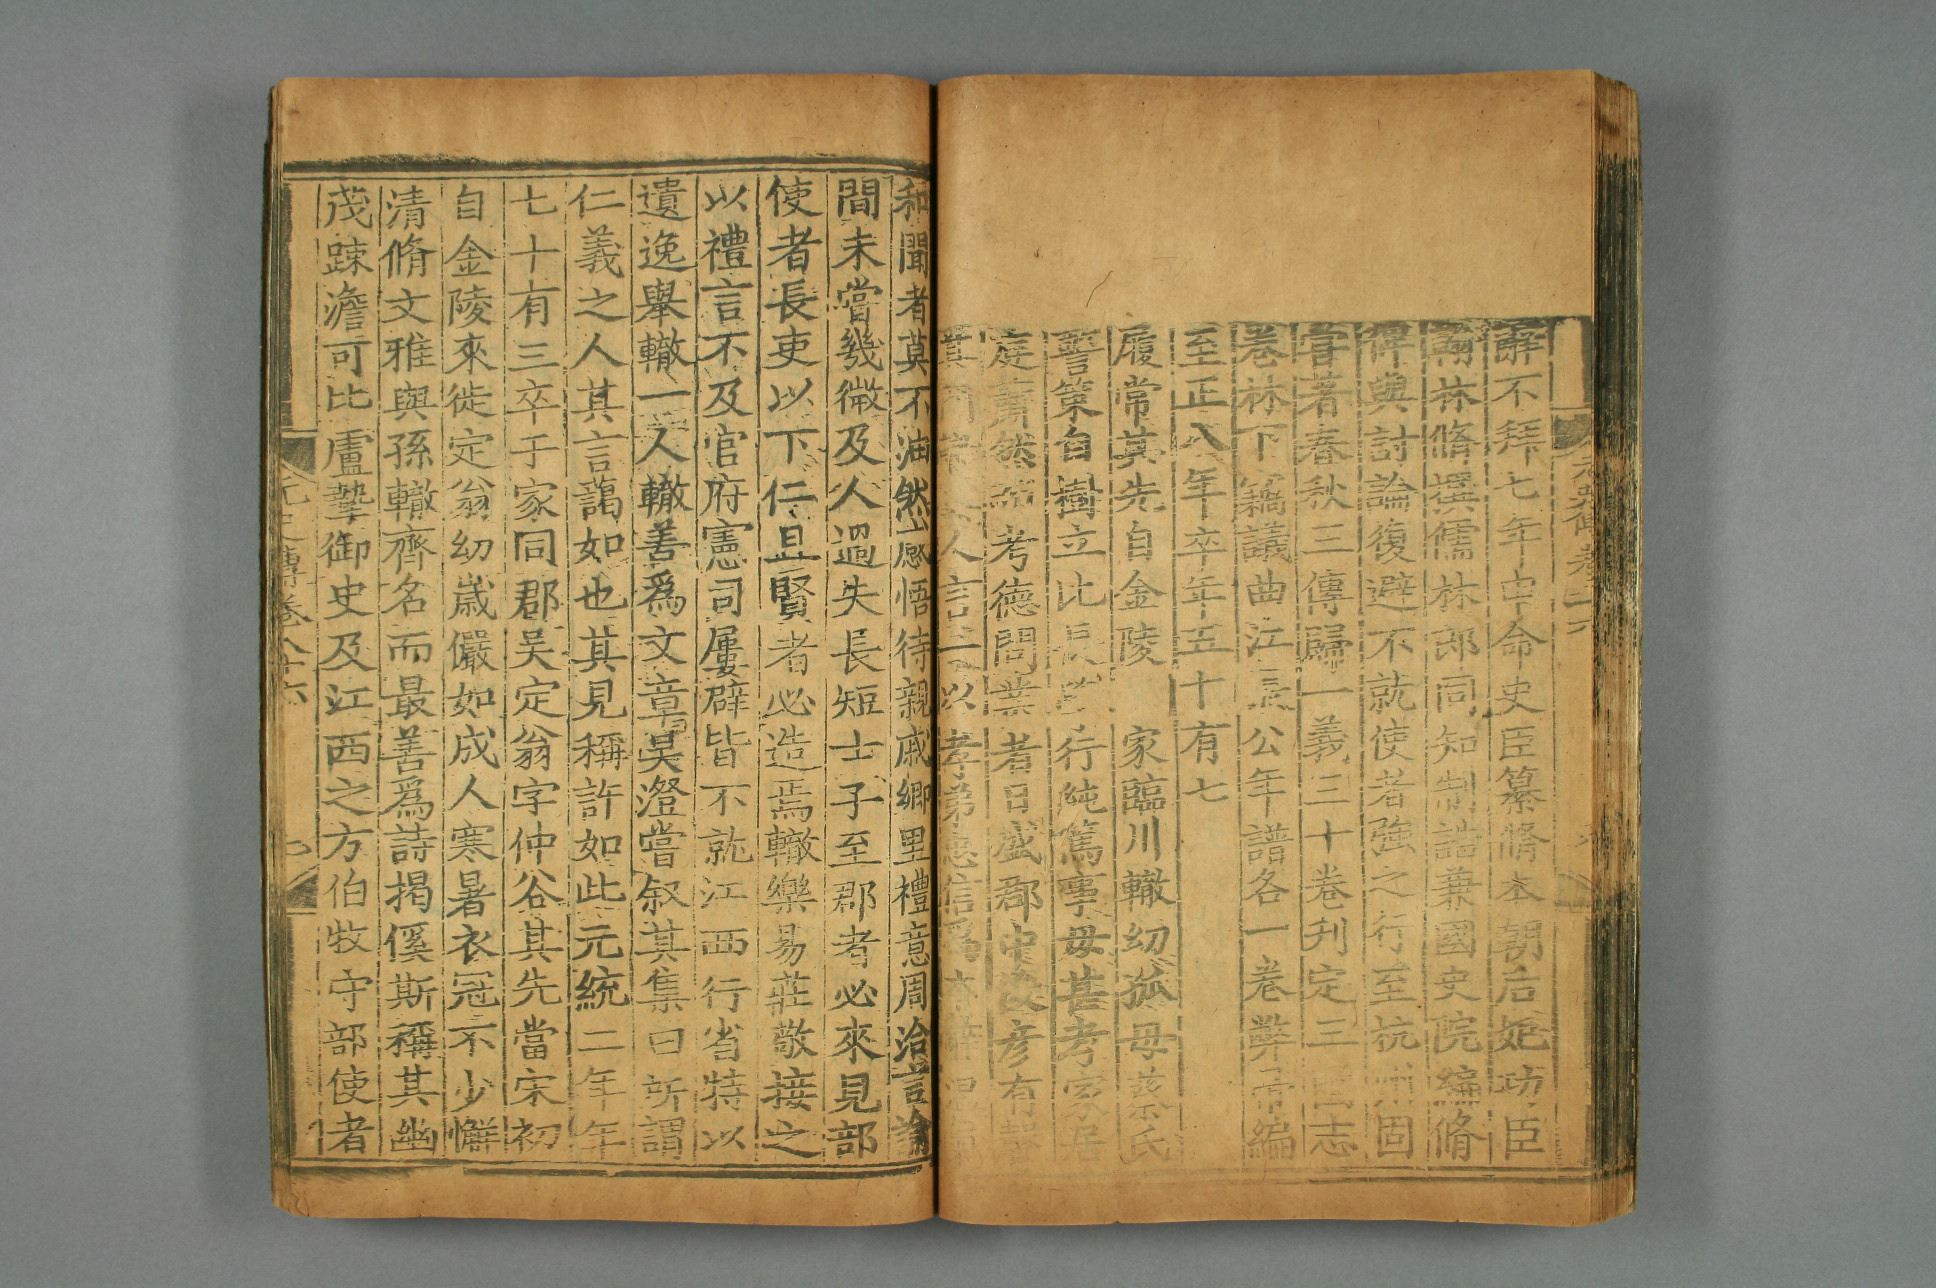 辭不拜七年申命史臣纂脩本朝后妃功臣
翰林脩撰儒林郎同知制誥兼國史院編脩
俾與討論復避不就使者強之行至杭州固
嘗著春秋三傳歸一義三十卷刋定三國志
卷林下竊議曲江張公年譜各一卷弊帚編
至正八年卒年五十有七
履常其先自金陵 家臨川轍幼孤母蔡氏
警策自樹立比長 行純篤事母甚孝家居
庭肅然 考德問業者日盛郡中俊彦有聲
其門 人言 以孝弟忠信爲本
和聞者莫不油然感悟待親戚鄉里禮意周洽言論
間未嘗幾微及人過失長短士子至郡者必來見部
使者長吏以下仁且賢者必造焉轍樂易莊敬接之
以禮言不及官府憲司屢辟皆不就江西行省特以
遺逸舉轍一人轍善爲文章吳澄嘗叙其集曰所謂
仁義之人其言藹如也其見稱許如此元統二年年
七十有三卒于家同郡吳定翁字仲谷其先當宋初
自金陵來徙定翁幼歲儼如成人寒暑衣冠不少懈
清脩文雅與孫轍齊名而最善爲詩揭傒斯稱其幽
茂踈澹可比盧摯御史及江西之方伯牧守部使者
元史傳卷八十六
七